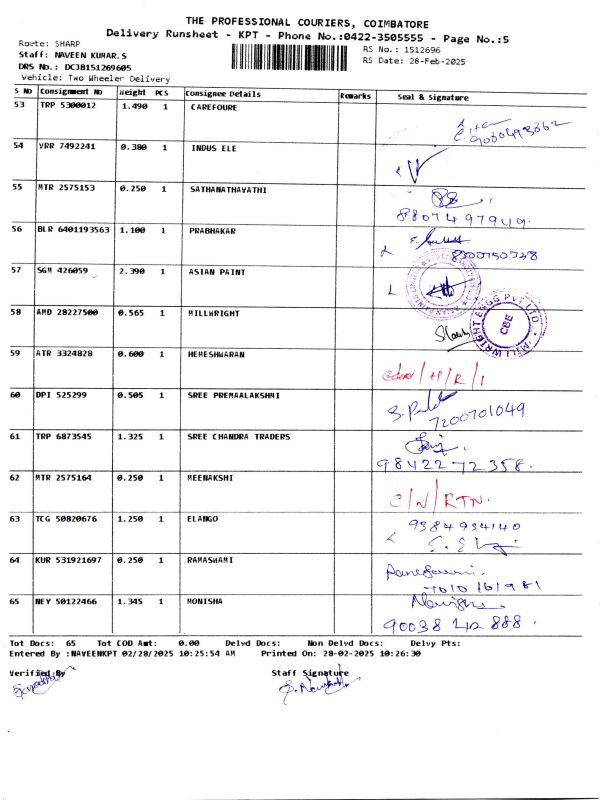 THE PROFESSIONAL COURIERS, COIMBATORE
Delivery Runsheet - KPT - Phone No.:0422-3505555 - Page No.:5
Route: SHARP
Staff: NAVEEN KUMAR.S
DRS No.: DCJB151269605
Vehicle: Two Wheeler Delivery
RS No.: 1512696
RS Date: 28-Feb-2025
S NO Consignment NO Weight PCS Consignee Details Remarks Seal & Signature
53 TRP 5300012 1.490 1 CAREFOURE
54 VRR 7492241 0.380 1 INDUS ELE
55 MTR 2575153 0.250 1 SATHANATHAYATHI
8807497949.
56 BLR 6401193563 1.100 1 PRABHAKAR
57 SGM 426059 2.390 1 ASIAN PAINT
58 AMD 28227500 0.565 1 MILLWRIGHT
MILLWRIGHT ENGG PVT LTD
CBE
59 ATR 3324828 0.600 1 HEMESHWARAN
60 DPI 525299 0.505 1 SREE PREMAALAKSHMI
7200701049
61 TRP 6873545 1.325 1 SREE CHANDRA TRADERS
98422 72358.
62 MTR 2575164 0.250 1 MEENAKSHI
C/N/RTN.
63 TCG 50820676 1.250 1 ELANGO
9384934140
64 KUR 531921697 0.250 1 RAMASWAMI
65 NEY 50122466 1.345 1 MONISHA
90038 42 888.
Tot Docs: 65 Tot COD Amt: 0.00 Delvd Docs: Non Delvd Docs: Delvy Pts:
Entered By :NAVEENKPT 02/28/2025 10:25:54 AM Printed On: 28-02-2025 10:26:30
Verified By
Staff Signature